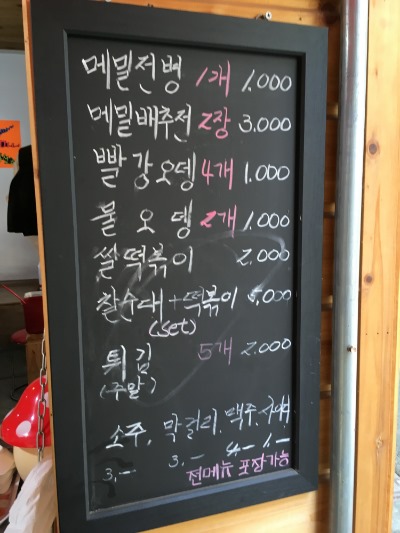 메밀전병 1개 1.000
메밀배추전 2장 3.000
빨강오뎅 4개 1.000
불오뎅 2개 1.000
쌀떡볶이 2.000
찰순대+떡볶이 5,000
(set)
튀김 5개 2.000
(주말)
소주, 막걸리, 맥주,
3,- 3,- 4- 1.-
전메뉴 포장가능